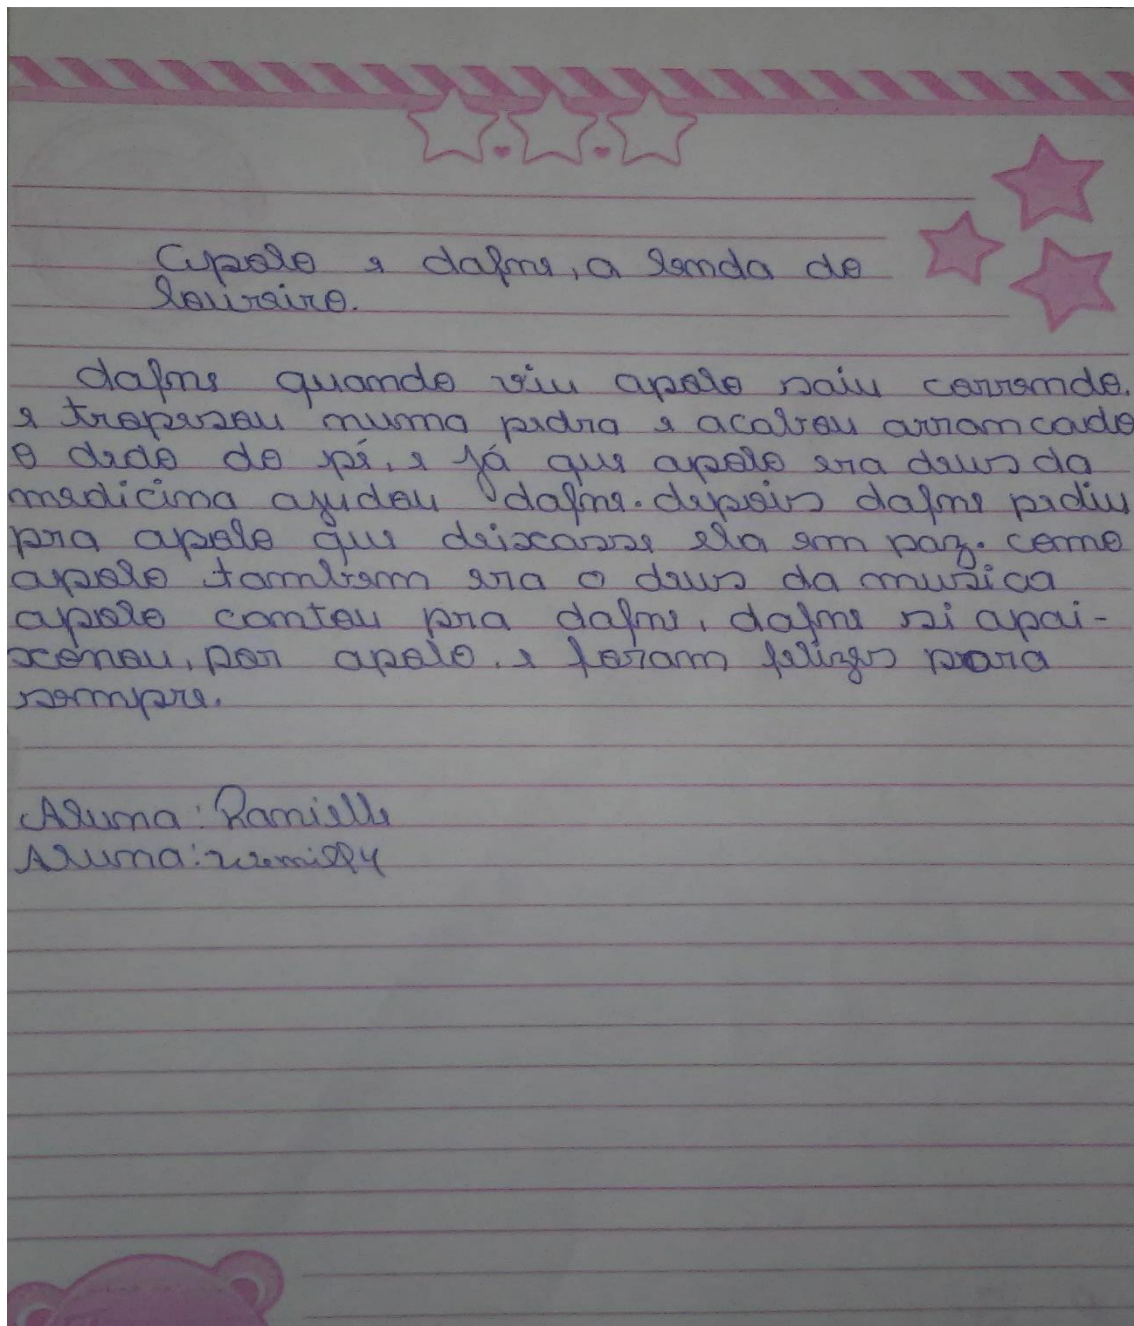 Apolo e dafne, a lenda do
loureiro.
dafne quando viu apolo saiu correndo.
e tropesou numa pedra e acabou arrancado
o dedo do pé, e já que apolo era deus da
medicina ajudou dafne. depois dafne pediu
pra apolo que deixasse ela em paz. como
apolo tambem era o deus da musica
apolo cantou pra dafne, dafne si apai-
xonou, por apolo, e foram felizes para
sempre.
Aluna: Ranielle
Aluna: